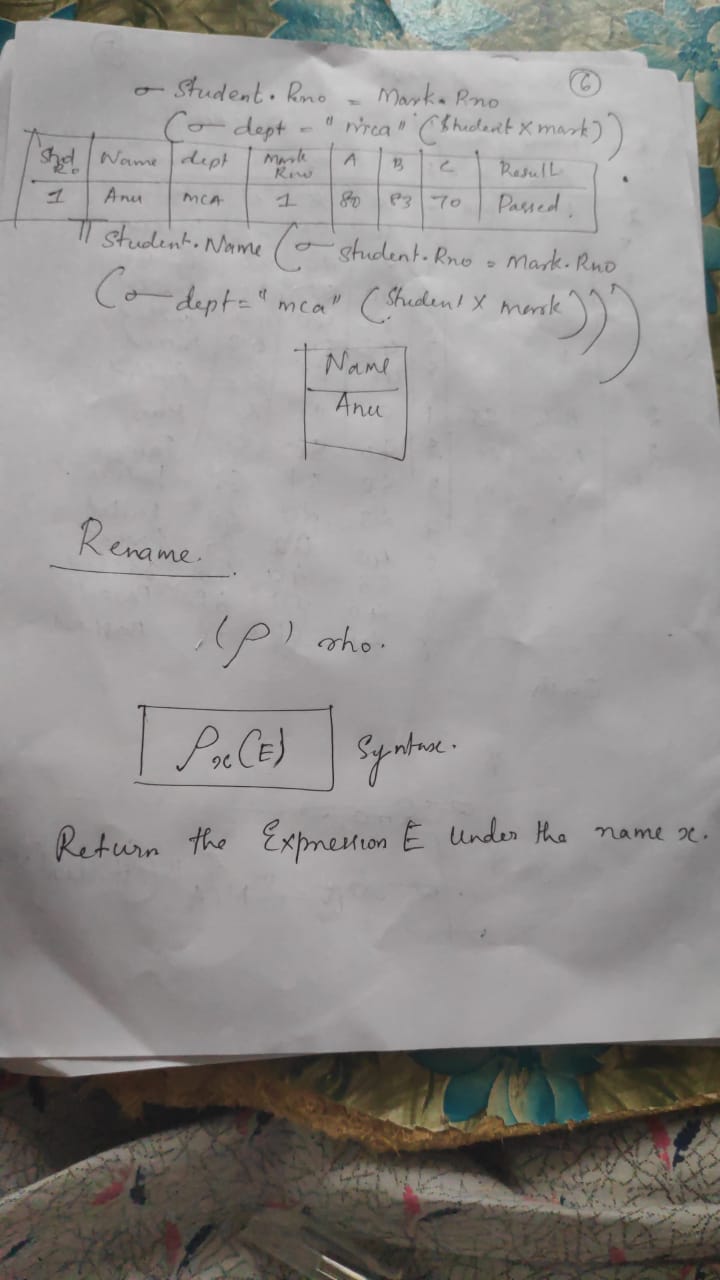 ⑥
σ Student. Rno = Mark. Rno
(σ dept = "mca" (Student X mark))
Stud R. | Name | dept | Mark Rno | A | B | C | Result
1 | Anu | MCA | 1 | 80 | 83 | 70 | Passed.
π Student. Name (σ Student. Rno = Mark. Rno
(σ dept = "mca" (Student X mark)))
Name
Anu
Rename.
(ρ) rho.
ρx(E) Syntax.
Return the Expression E under the name x.